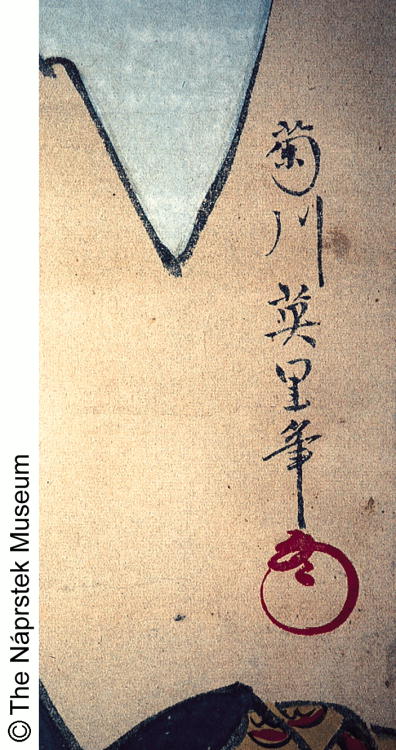 菊川英里筆
© The Náprstek Museum